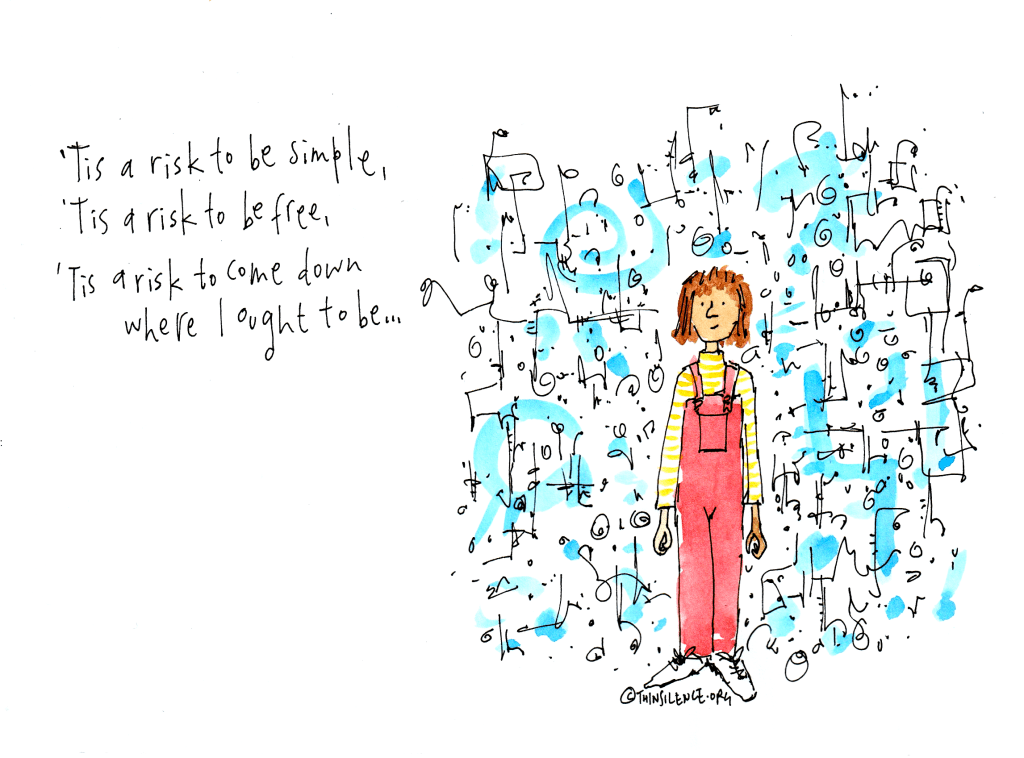 'Tis a risk to be simple,
'Tis a risk to be free,
'Tis a risk to come down
where I ought to be...
©THINSILENCE.ORG